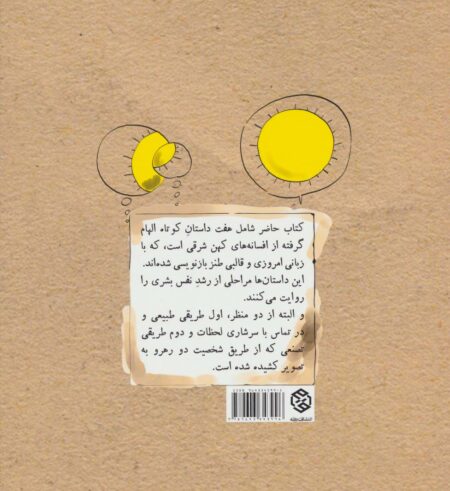 کتاب حاضر شامل هفت داستانِ کوتاه الهام
گرفته از افسانه‌های کهن شرقی است، که با
زبانی امروزی و قالبی طنز بازنویسی شده‌اند.
این داستان‌ها مراحلی از رشدِ نفس بشری را
روایت می‌کنند.
و البته از دو منظر، اول طریقی طبیعی و
در تماس با سرشاری لحظات و دوم طریقی
تصنعی که از طریق شخصیت دو رهرو به
تصویر کشیده شده است.